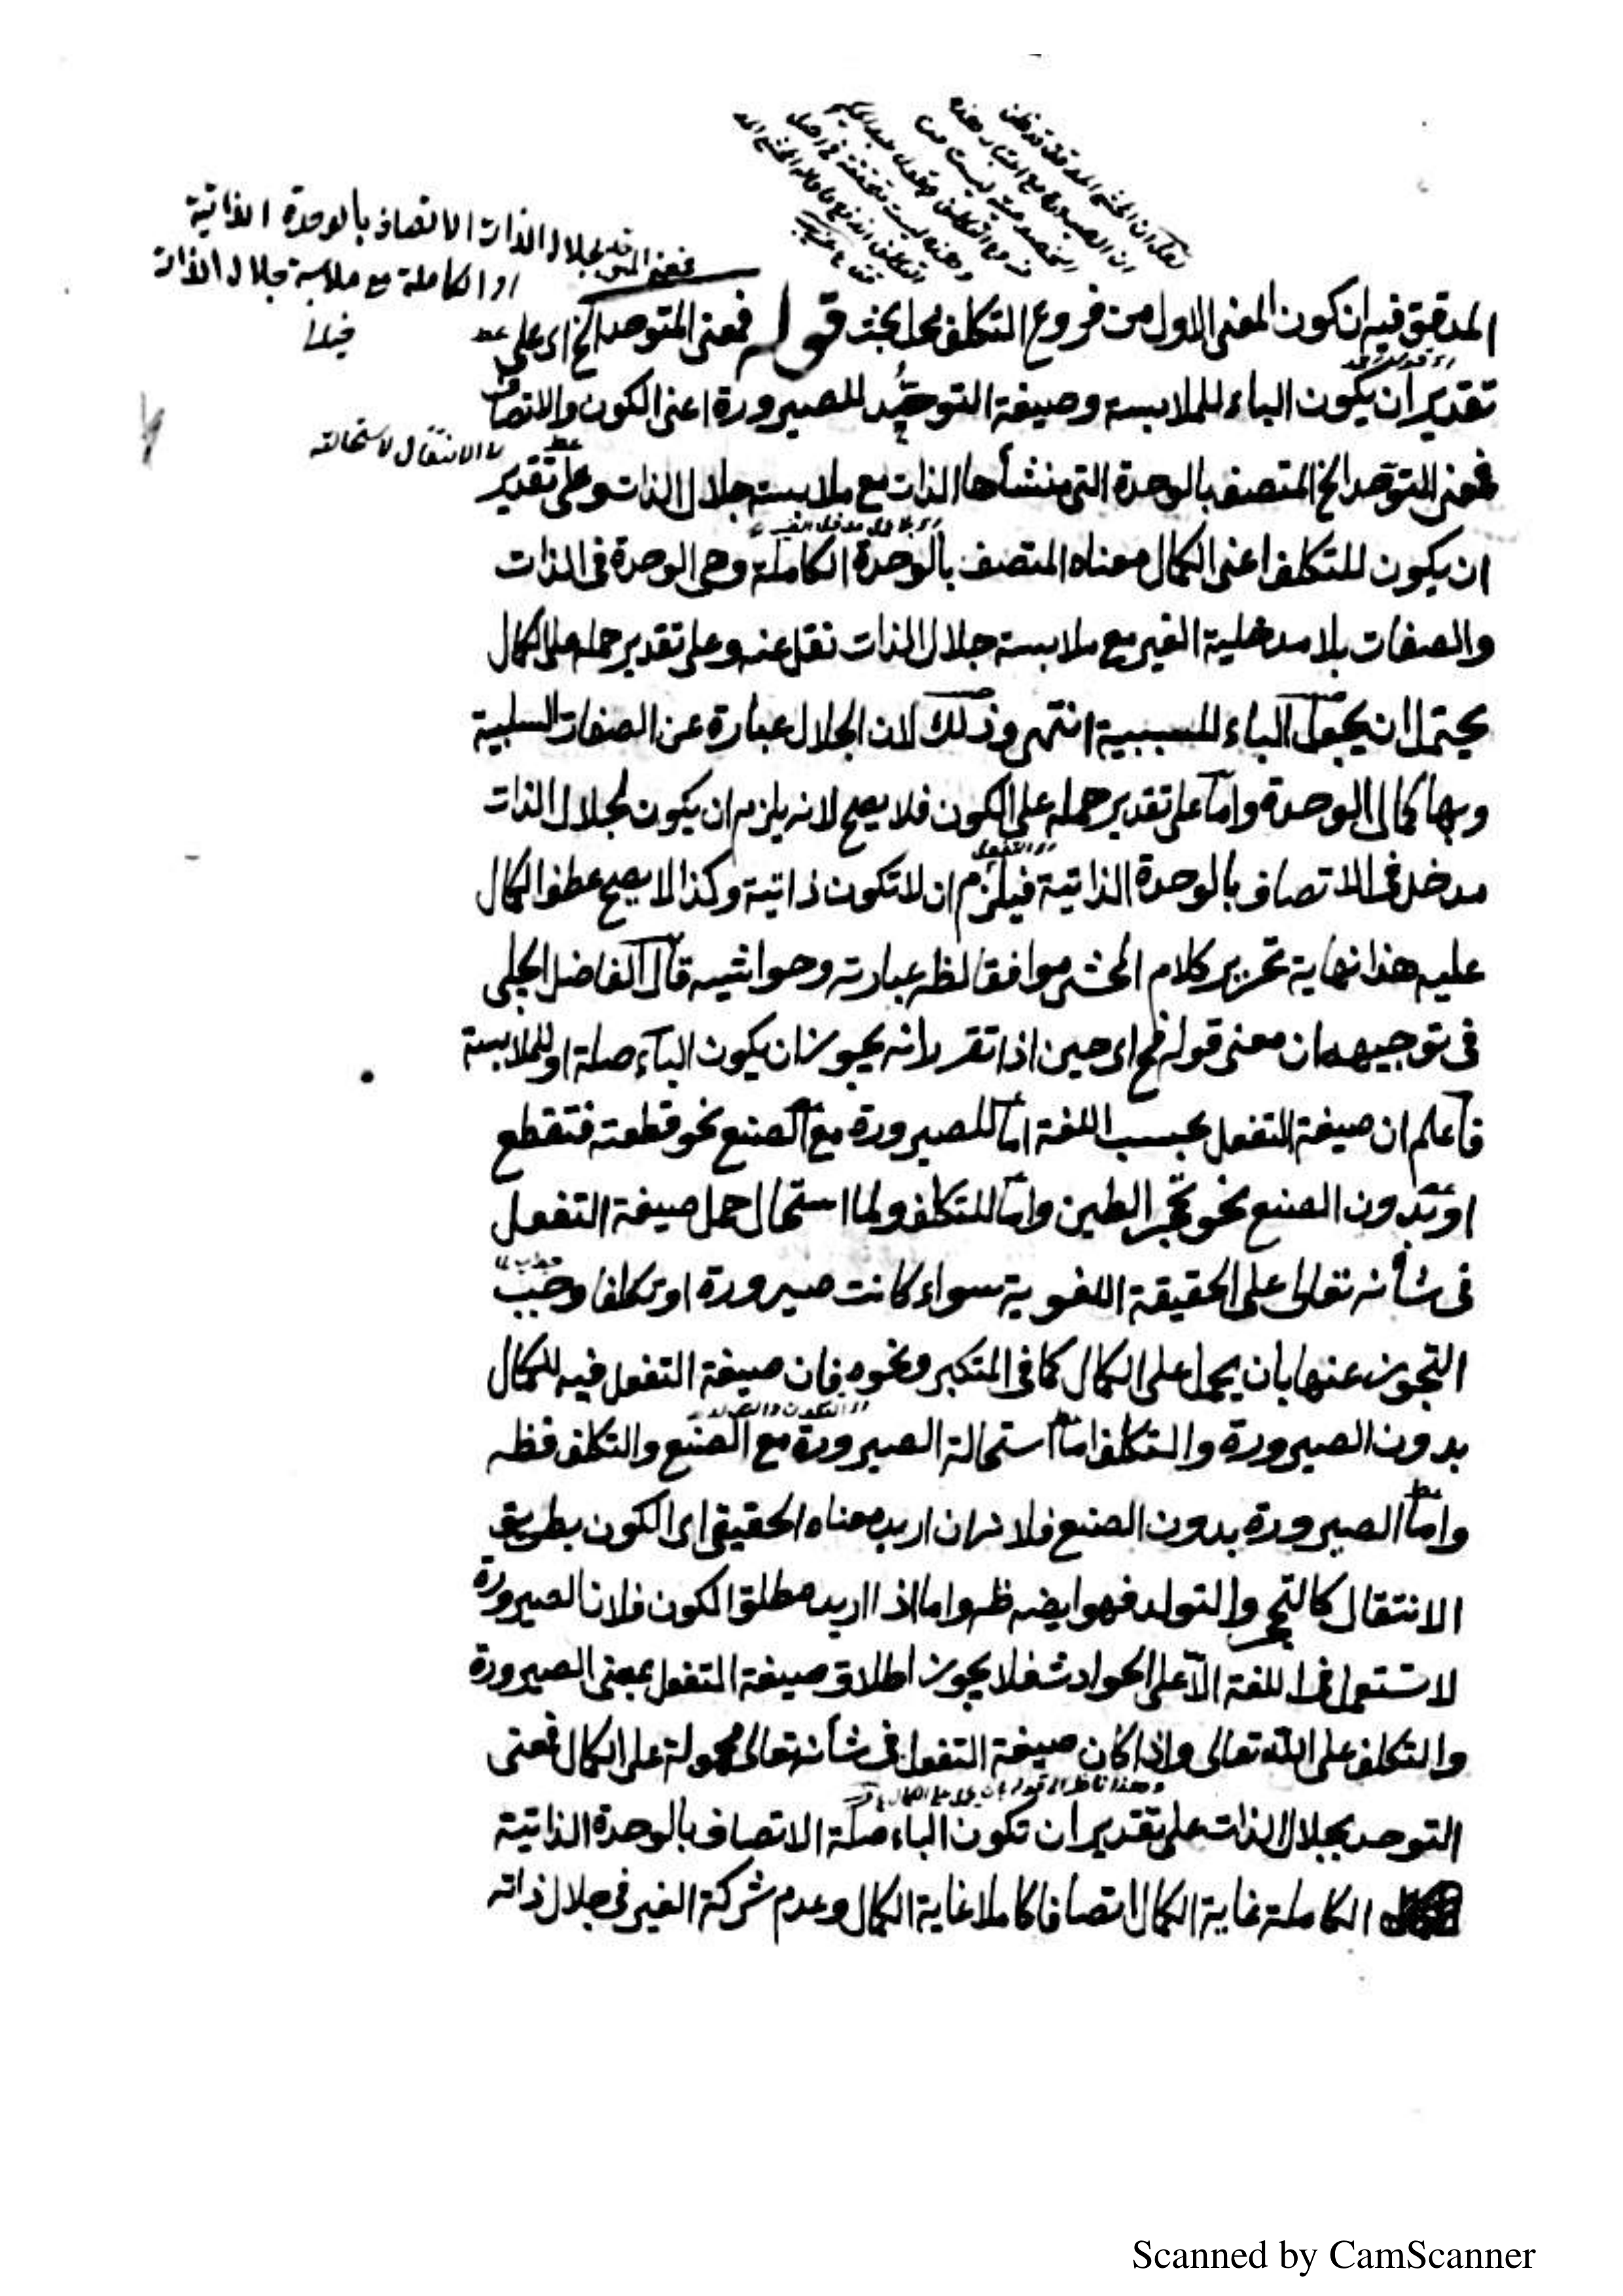 فمعنى المتوحد بجلال الذات الاتصاف بالوحدة الذاتية
او الكاملة مع ملابسة جلال الذات
خيالى
المدقق فيه ان كون المعنى الاول من فروع التكلف محل بحث قوله فمعنى المتوحد الخ اى على
تقدير ان يكون الباء للملابسة وصيغة التوحيد للصيرورة اعنى الكون والاتصاف
لا الانتقال لاستحالته
فمعنى المتوحد الخ المتصف بالوحدة التى منشأها الذات مع ملابسة جلال الذات وعلى تقدير
ان يكون للتكلف اعنى الكمال معناه المتصف بالوحدة الكاملة وهى الوحدة فى الذات
والصفات بلا مدخلية الغير مع ملابسة جلال الذات نقل عنه وعلى تقدير حمله على الكمال
يحتمل ان يجعل الباء للسببية انتهى وذلك لان الجلال عبارة عن الصفات السلبية
وبها كمال الوحدة واما على تقدير حمله على الكون فلا يصح لانه يلزم ان يكون لجلال الذات
مدخل فى الاتصاف بالوحدة الذاتية فيلزم ان لا تكون ذاتية وكذا لا يصح عطف الكمال
عليه هذا نهاية تحرير كلام المحشى موافقا لظ عبارته وحواشيه قال الفاضل الجلى
فى توجيهه ان معنى قوله فح اى حين اذا تقرر انه يجوز ان يكون الباء صلة او للملابسة
فاعلم ان صيغة التفعل بحسب اللغة اما للصيرورة مع الصنع نحو قطعته فتقطع
او بدون الصنع نحو تحجر الطين واما للتكلف ولما استحال حمل صيغة التفعل
فى شأنه تعالى على الحقيقة اللغوية سواء كانت صيرورة او تكلفا وجب
التجوز عنها بان يحمل على الكمال كما فى المتكبر ونحوه فان صيغة التفعل فيه للكمال
بدون الصيرورة والتكلف اما استحالة الصيرورة مع الصنع والتكلف فظ
واما الصيرورة بدون الصنع فلانه ان اريد معناه الحقيقى اى الكون بطريق
الانتقال كالتحجر والتولد فهو ايضه ظ واما اذا اريد مطلق الكون فلان الصيرورة
لا تستعمل فى اللغة الا على الحوادث فلا يجوز اطلاق صيغة التفعل بمعنى الصيرورة
والتكلف على الله تعالى واذا كان صيغة التفعل فى شأنه تعالى محمولة على الكمال فمعنى
وهذا ناظر الى قوله بان يحمل على الكمال
التوحد بجلال الذات على تقدير ان تكون الباء صلة الاتصاف بالوحدة الذاتية
الكاملة غاية الكمال اتصافا كاملا غاية الكمال وعدم شركة الغير فى جلال ذاته
Scanned by CamScanner